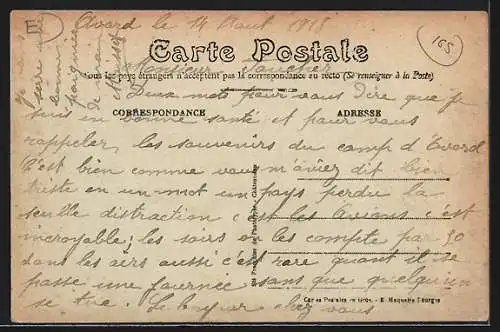 Avord le 14 Aout 1918
Carte Postale
Monsieur
Tous les pays étrangers n'acceptent pas la correspondance au recto (Se renseigner à la Poste)
Deux mots pour vous dire que je
CORRESPONDANCE
ADRESSE
suis en bonne santé et pour vous
rappeler les souvenirs du camp d'Avord
C'est bien comme vous m'aviez dit bien
triste en un mot un pays perdu la
seulle distraction c'est les Avions c'est
incroyable; les soirs on les compte par 50
dans les airs aussi c'est rare quant il se
passe une journée sans que quelqu'un
se tue. Le bonjour chez vous
bonne
poignée
de main
165
E